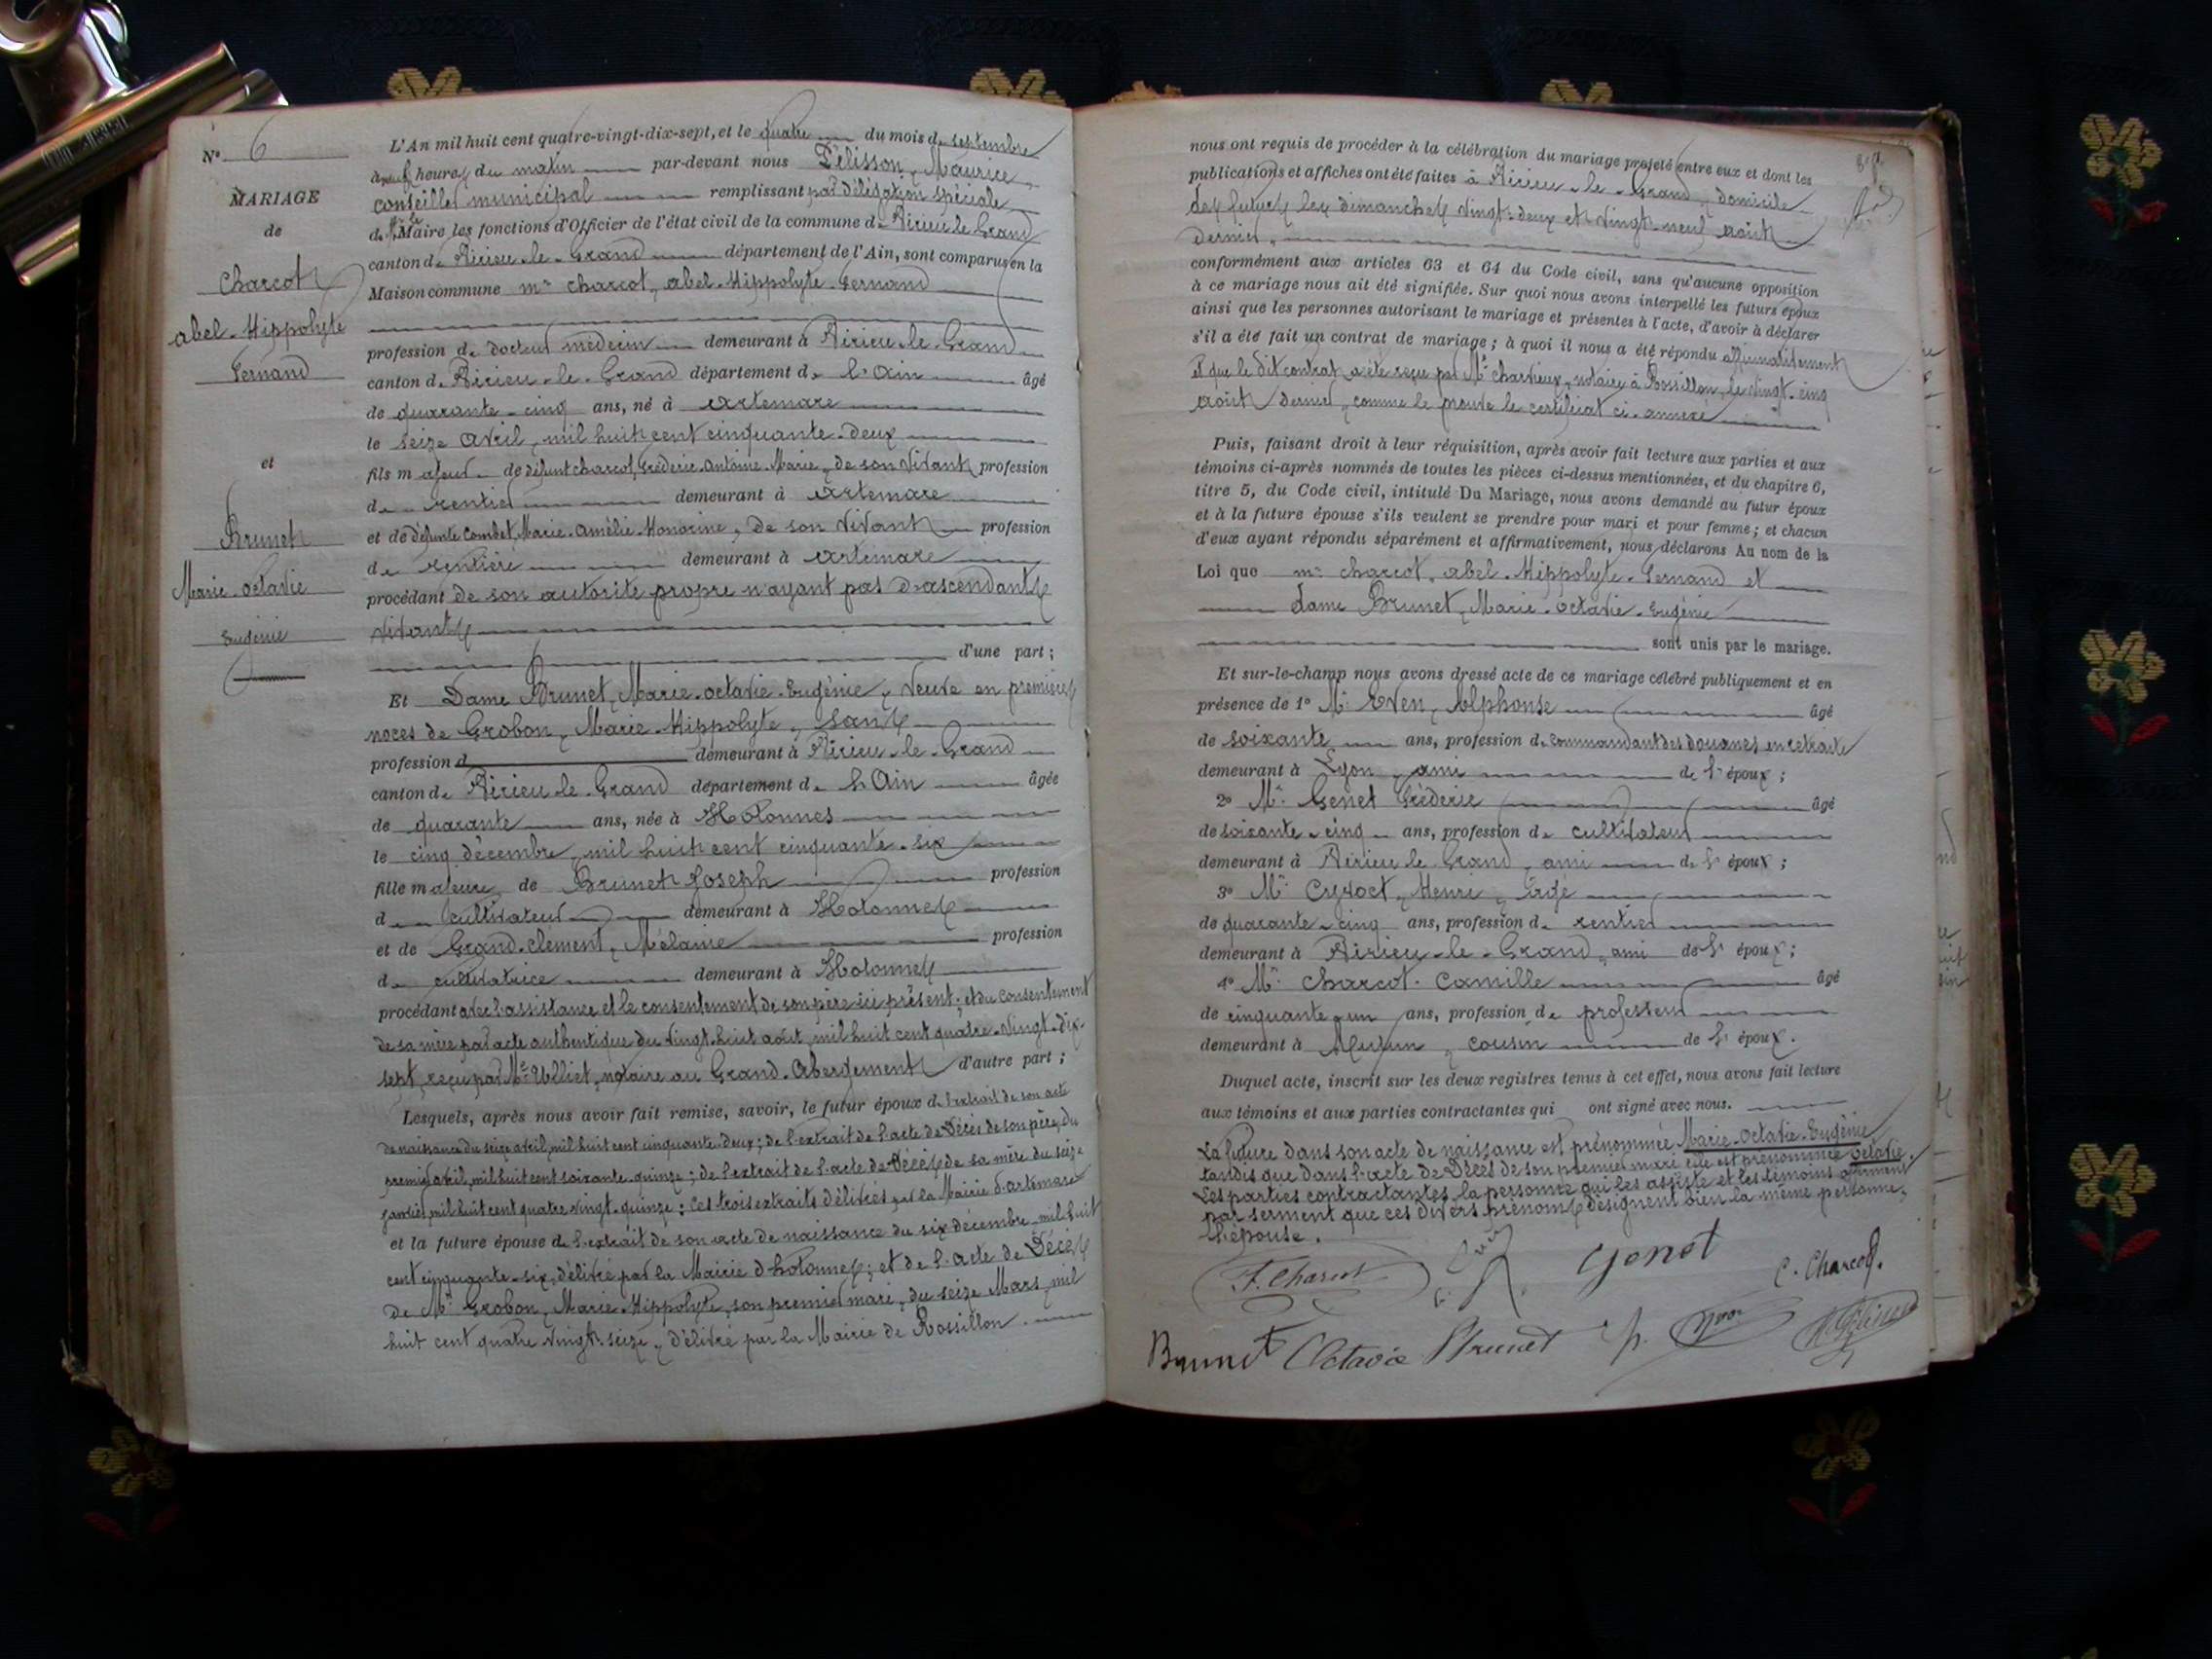 N° 6
MARIAGE
de
Charcot
abel-Hippolyte
Fernand
et
Brunet
Marie-octavie
Eugénie
L'An mil huit cent quatre-vingt-dix-sept, et le quatre du mois de septembre
à neuf heures du matin par-devant nous Pélisson, Maurice,
conseiller municipal remplissant par délégation spéciale
de Mr le Maire les fonctions d'Officier de l'état civil de la commune de Virieu le Grand
canton de Virieu-le-Grand département de l'Ain, sont comparus en la
Maison commune mr charcot, abel-Hippolyte-Fernand
profession de docteur médecin demeurant à Virieu-le-Grand
canton de Virieu-le-Grand département de l'Ain âgé
de quarante-cinq ans, né à artemare
le seize avril, mil huit cent cinquante-deux
fils majeur de défunt charcot, Fréderic-Antoine-Marie, de son vivant profession
de rentier demeurant à artemare
et de défunte Combet, Marie-Amélie-Honorine, de son vivant profession
de rentière demeurant à artemare
procédant de son autorité propre n'ayant pas d'ascendants
vivants
d'une part;
Et Dame Brunet, Marie-octavie-Eugénie, Veuve en premières
noces de Grobon, Marie-Hippolyte, sans
profession d demeurant à Virieu-le-Grand
canton de Virieu-le-Grand département de l'Ain âgée
de quarante ans, née à Hotonnes
le cinq décembre, mil huit cent cinquante-six
fille majeure, de Brunet Joseph profession
de cultivateur demeurant à Hotonnes
et de Grand-clement, Mélanie profession
de cultivatrice demeurant à Hotonnes
procédant avec l'assistance et le consentement de son père ici présent; et du consentement
de sa mère par acte authentique du vingt-huit août, mil huit cent quatre-vingt-dix-
sept, reçu par Me Ulliet, notaire au Grand-Abergement d'autre part;
Lesquels, après nous avoir fait remise, savoir, le futur époux de l'extrait de son acte
de naissance du seize avril, mil huit cent cinquante-deux; de l'extrait de l'acte de Décès de son père, du
premier avril, mil huit cent soixante-quinze; de l'extrait de l'acte de Décès de sa mère du seize
janvier, mil huit cent quatre vingt-quinze: Ces trois extraits délivrés par la Mairie d'artemare
et la future épouse de l'extrait de son acte de naissance du six décembre mil huit
cent cinquante-six, délivré par la Mairie d'hotonnes; et de l'acte de Décès
de Mr Grobon, Marie-Hippolyte, son premier mari, du seize Mars, mil
huit cent quatre vingt-seize, délivré par la Mairie de Rossillon.
nous ont requis de procéder à la célébration du mariage projeté entre eux et dont les
publications et affiches ont été faites à Virieu-le-Grand, domicile
des futurs les dimanches vingt-deux et vingt-neuf août
dernier,
conformément aux articles 63 et 64 du Code civil, sans qu'aucune opposition
à ce mariage nous ait été signifiée. Sur quoi nous avons interpellé les futurs époux
ainsi que les personnes autorisant le mariage et présentes à l'acte, d'avoir à déclarer
s'il a été fait un contrat de mariage; à quoi il nous a été répondu affirmativement
et que le dit contrat a été reçu par Me charvieux, notaire à Rossillon, le vingt-cinq
août dernier, comme le prouve le certificat ci-annexé
Puis, faisant droit à leur réquisition, après avoir fait lecture aux parties et aux
témoins ci-après nommés de toutes les pièces ci-dessus mentionnées, et du chapitre 6,
titre 5, du Code civil, intitulé Du Mariage, nous avons demandé au futur époux
et à la future épouse s'ils veulent se prendre pour mari et pour femme; et chacun
d'eux ayant répondu séparément et affirmativement, nous déclarons Au nom de la
Loi que mr charcot, abel-Hippolyte-Fernand et
dame Brunet, Marie-octavie-Eugénie
sont unis par le mariage.
Et sur-le-champ nous avons dressé acte de ce mariage célébré publiquement et en
présence de 1° Mr Even, Alphonse âgé
de soixante ans, profession de Commandant des douanes en retraite
demeurant à Lyon, ami de l'époux;
2° Mr Genet Fréderic âgé
de soixante-cinq ans, profession de cultivateur
demeurant à Virieu le Grand, ami de l'époux;
3° Mr Cyvoct, Henri, âgé
de quarante-cinq ans, profession de rentier
demeurant à Virieu-le-Grand, ami de l'époux;
4° Mr Charcot. Camille âgé
de cinquante-un ans, profession de professeur
demeurant à cousin de l'époux.
Duquel acte, inscrit sur les deux registres tenus à cet effet, nous avons fait lecture
aux témoins et aux parties contractantes qui ont signé avec nous.
La future dans son acte de naissance est prénommée Marie-Octavie-Eugénie
tandis que dans l'acte de Décès de son premier mari elle est prénommée Octavie.
Les parties contractantes, la personne qui les assiste et les témoins affirment
par serment que ces divers prénoms désignent bien la même personne,
l'épouse.
F. Charcot
Genet
C. Charcot.
Brunet Octavie Brunet